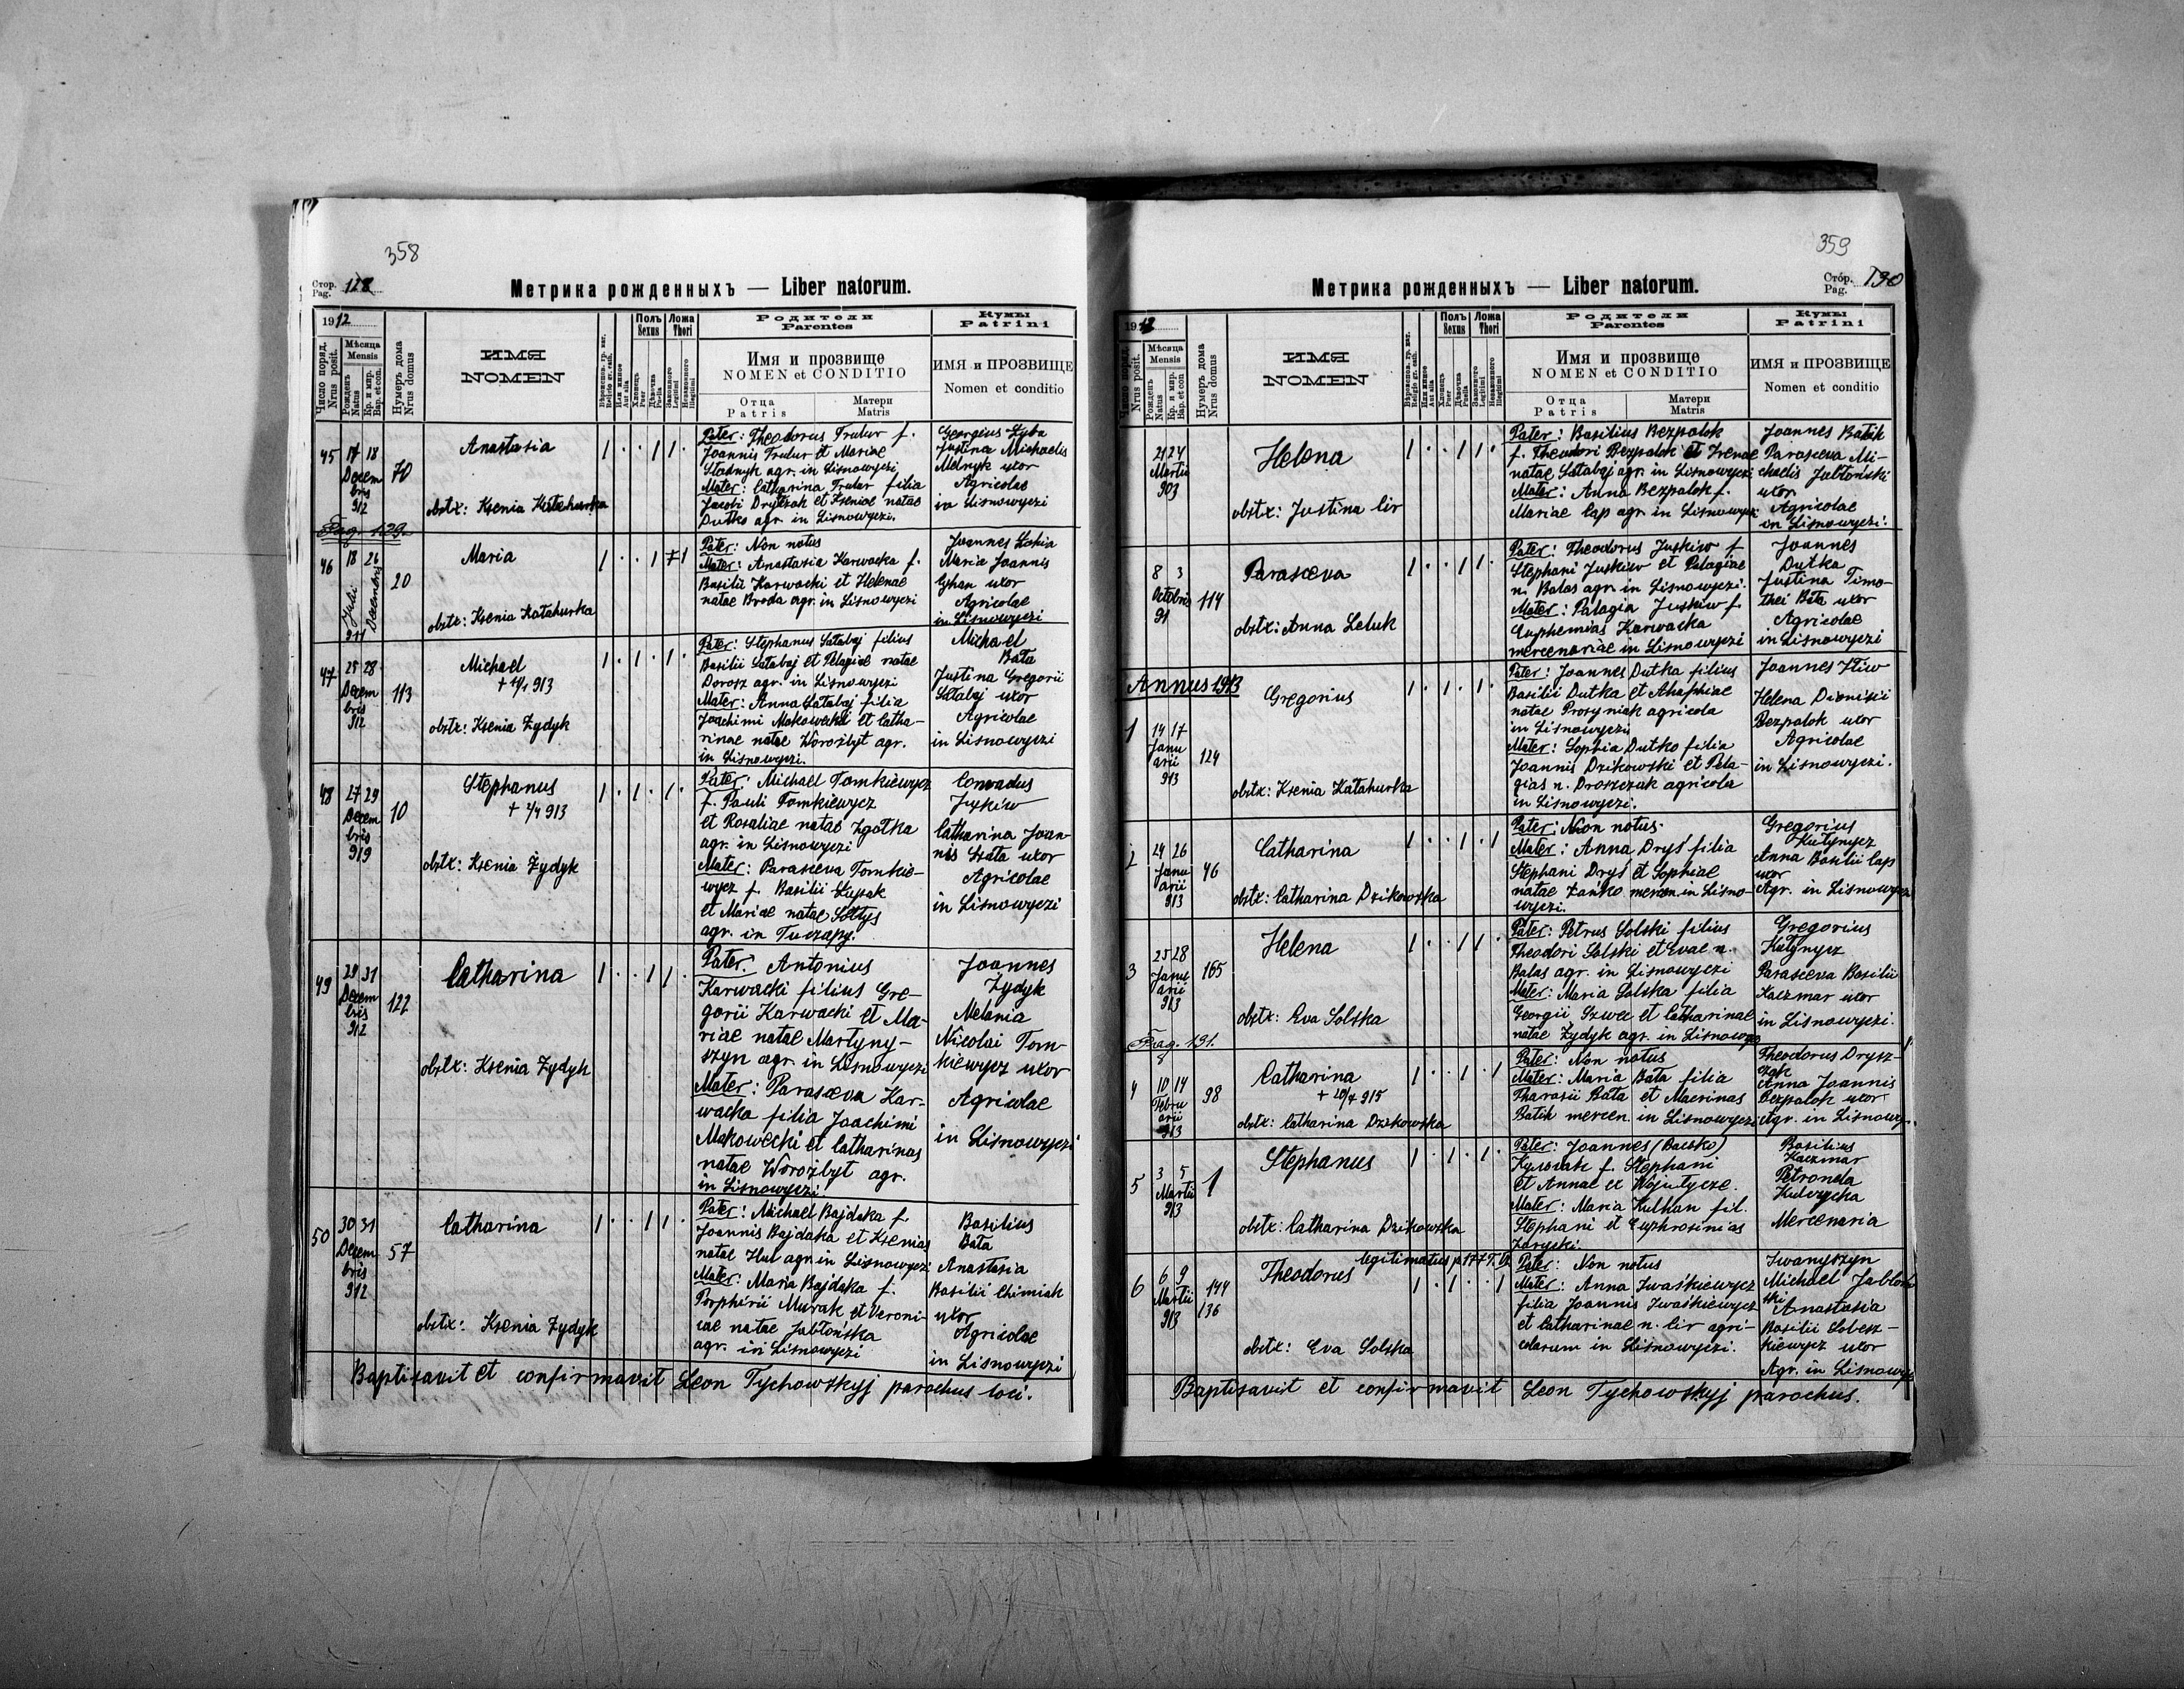 358
Стор. Pag. 128
Метрика рожденныхъ — Liber natorum.
1912
Число поряд. Nrus posit.
Мѣсяца Mensis
Рожденъ Natus
Кр. и мир. Bap. et con.
Нумеръ дома Nrus domus
ИМЯ
NOMEN
Полъ Sexus
Ложа Thori
Родители
Parentes
Имя и прозвище
NOMEN et CONDITIO
Отца Patris
Матери Matris
Кумы
Patrini
ИМЯ и ПРОЗВИЩЕ
Nomen et conditio
45
17 18
Decem
bris
912
70
Anastasia
obstx: Ksenia Katahurka
Pater: Theodorus Trutur f.
Joannis Trutur et Mariae
Stadnyk agr. in Lisnowyczi
Mater: Catharina Trutur filia
Jacobi Dryszak et Kseniae natae
Dutko agr. in Lisnowyczi.
Georgius Zyba
Justina Michaelis
Melnyk uxor
Agricolae
in Lisnowyczi
Pag. 129.
46
18 26
Julii
Decembris
911
20
Maria
obstx: Ksenia Katahurka
Pater: Non notus
Mater: Anastasia Karwacka f.
Basilii Karwacki et Helenae
natae Broda agr. in Lisnowyczi
Joannes
Maria Joannis
uxor
Agricolae
in Lisnowyczi
47
25 28
Decem
bris
912
113
Michael
+ 14/1 913
obstx: Ksenia Zydyk
Pater: Stephanus Satabaj filius
Basilii Satabaj et Pelagiae natae
Dorosz agr. in Lisnowyczi
Mater: Anna Satabaj filia
Joachimi Makowecki et Catha-
rinae natae Worożbyt agr.
in Lisnowyczi.
Michael
Bata
Justina Gregorii
Satabaj uxor
Agricolae
in Lisnowyczi
48
27 29
Decem
bris
919
10
Stephanus
+ 1/4 913
obstx: Ksenia Żydyk
Pater: Michael Tomkiewycz
f. Pauli Tomkiewycz
et Rosaliae natae Zgotka
agr. in Lisnowyczi
Mater: Parasceva Tomkie-
wycz f. Basilii
et Mariae natae Sottys
agr. in Tuczapy.
Conradus
Juskiw
Catharina Joan-
nis uxor
Agricolae
in Lisnowyczi
49
29 31
Decem
bris
912
122
Catharina
obstx: Ksenia Zydyk
Pater: Antonius
Karwacki filius Gre-
gorii Karwacki et Ma-
riae natae Martyny-
szyn agr. in Lisnowyczi
Mater: Parasceva Kar-
wacka filia Joachimi
Makowecki et Catharinas
natae Worożbyt agr.
in Lisnowyczi
Joannes
Zydyk
Melania
Nicolai Tom-
kiewycz uxor
Agricolae
in Lisnowyczi
50
30 31
Decem
bris
912
57
Catharina
obstx: Ksenia Zydyk
Pater: Michael Bajdaka f.
Joannis Bajdaka et Ksenias
natae Hul agr. in Lisnowyczi
Mater: Maria Bajdaka f.
Porphirii Murak et Veroni-
cae natae Jabłońska
agr. in Lisnowyczi
Basilius
Bata
Anastasia
Basilii Chimiak
uxor
Agricolae
in Lisnowyczi
Baptisavit et confirmavit Leon Tychowskyj parochus loci.
359
Стор. Pag. 130
Метрика рожденныхъ — Liber natorum.
1913
Число поряд. Nrus posit.
Мѣсяца Mensis
Рожденъ Natus
Кр. и мир. Bap. et con
Нумеръ дома Nrus domus
ИМЯ
NOMEN
Полъ Sexus
Ложа Thori
Родители
Parentes
Имя и прозвище
NOMEN et CONDITIO
Отца Patris
Матери Matris
Кумы
Patrini
ИМЯ и ПРОЗВИЩЕ
Nomen et conditio
21 24
Martii
903
Helena
obstx: Justina Cir
Pater: Basilius Bezpalok
f. Theodori Bezpalok et Irenae
natae Satabaj agr. in Lisnowyczi
Mater: Anna Bezpalok f.
Mariae Cap agr. in Lisnowyczi
Joannes Batik
Parasceva Mi-
chaelis Jabłoński
uxor
Agricolae
in Lisnowyczi.
8 3
Octobris
91
114
Parasceva
obstx: Anna Leluk
Pater: Theodorus Juskiw f
Stephani Juskiw et Pelagiae
n. Balas agr. in Lisnowyczi.
Mater: Palagia Juskiw f.
Euphemias Karwacka
mercenariae in Lisnowyczi
Joannes
Dutka
Justina Timo-
thei Bata uxor
Agricolae
in Lisnowyczi
Annus 1913
1
14 17
Janu
arii
913
124
Gregorius
obstx: Ksenia Katahurka
Pater: Joannes Dutka filius
Basilii Dutka et Ahaphiae
natae Prosyniak agricola
in Lisnowyczi
Mater: Sophia Dutko filia
Joannis Dzikowski et Pela-
gias n. Droszczuk agricola
in Lisnowyczi.
Joannes Iliw
Helena Dionisii
Bezpalok uxor
Agricolae
in Lisnowyczi.
2
24 26
Janu
arii
913
46
Catharina
obstx: Catharina Dzikowska
Pater: Non notus.
Mater: Anna Dryś filia
Stephani Dryś et Sophiae
natae Zańko mercen. in Lisno-
wyczi.
Gregorius
Kutynycz
Anna Basilii Cap
uxor
Agr. in Lisnowyczi
3
25 28
Janu
arii
913
165
Helena
obstx: Eva Solska
Pater: Petrus Solski filius
Theodori Solski et Evae n.
Balas agr. in Lisnowyczi
Mater: Maria Solska filia
Georgii Szwec et Catharinae
natae Zydyk agr. in Lisnowyczi
Gregorius
Kutynycz
Parasceva Basilii
Kaczmar uxor
in Lisnowyczi.
Pag. 131.
4
10 14
Febru
arii
913
98
Catharina
+ 20/4 915
obstx: Catharina Dzikowska
Pater: Non notus
Mater: Maria Bata filia
Tharasii Bata et Macrinas
Batik mercen. in Lisnowyczi
Theodorus Drysz-
czak
Anna Joannis
Bezpalok uxor
Agr. in Lisnowy.
5
3 5
Martii
913
1
Stephanus
obstx: Catharina Dzikowska
Pater: Joannes
f. Stephani
et Annae ex Wojutycze.
Mater: Maria Kulhan fil.
Stephani et Euphrosinias
Zarycki.
Basilius
Kaczmar
Petronela
Kulczycka
Mercenaria
6
6 9
Martii
913
144
136
Theodorus
legitimatus
obstx: Eva Solska
Pater: Non notus
Mater: Anna Iwaśkiewycz
filia Joannis Iwaśkiewycz
et Catharinae n. Cir agri-
colarum in Lisnowyczi.
Iwanyszyn
Michael Jabłoń
ski
Anastasia
Basilii Sobesz-
kiewycz uxor
Agr. in Lisnowyczi
Baptisavit et confirmavit Leon Tychowskyj parochus.